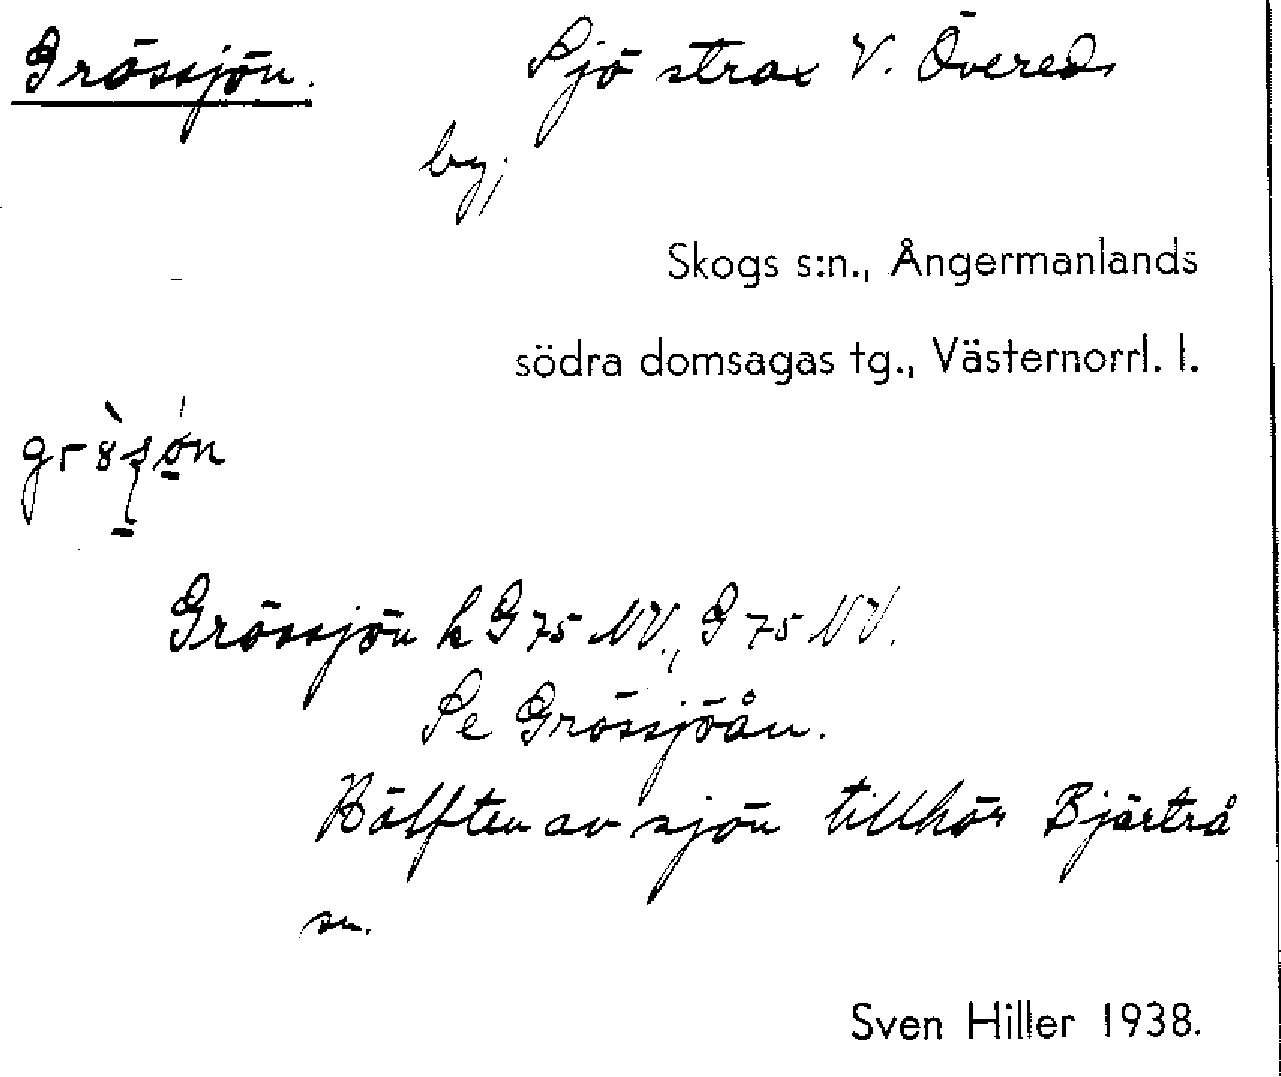 Grössjön. Sjö strax V. Övereds
by;
Skogs s:n., Ångermanlands
södra domsagas tg., Västernorrl. l.
Grössjön k G 75 NV., G 75 NV.
Se Grössjöån.
Hälften av sjön tillhör Bjärtrå
sn.
Sven Hiller 1938.